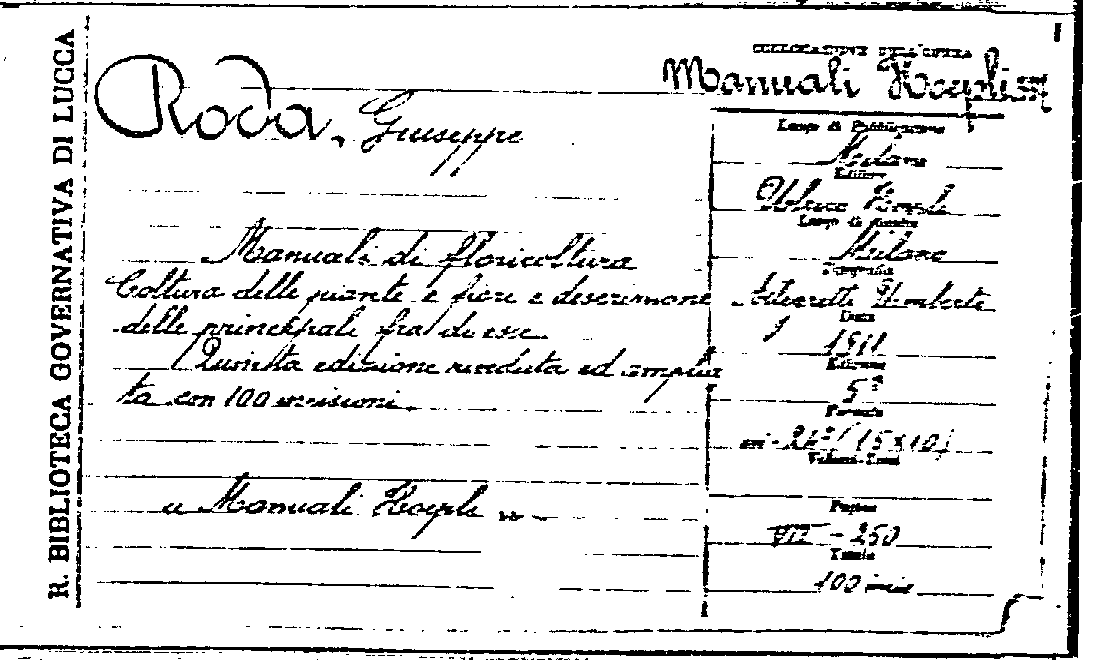 R. BIBLIOTECA GOVERNATIVA DI LUCCA
COLLOCAZIONE DELL'OPERA
Manuali Hoepli
Roda, Giuseppe
Manuale di floricoltura
Coltura delle piante e fiori e descrizione
delle principali fra di esse.
Quinta edizione riveduta ed amplia
ta con 100 incisioni.
" Manuali Hoepli "
Luogo di Pubblicazione
Milano
Editore
Ulrico Hoepli
Luogo di stampa
Milano
Tipografia
Allegretti Umberto
Data
1911
Edizione
5ª
Formato
in-24º (15x10)
Volumi-Tomi
Pagine
VIII - 250
Tavole
100 incis